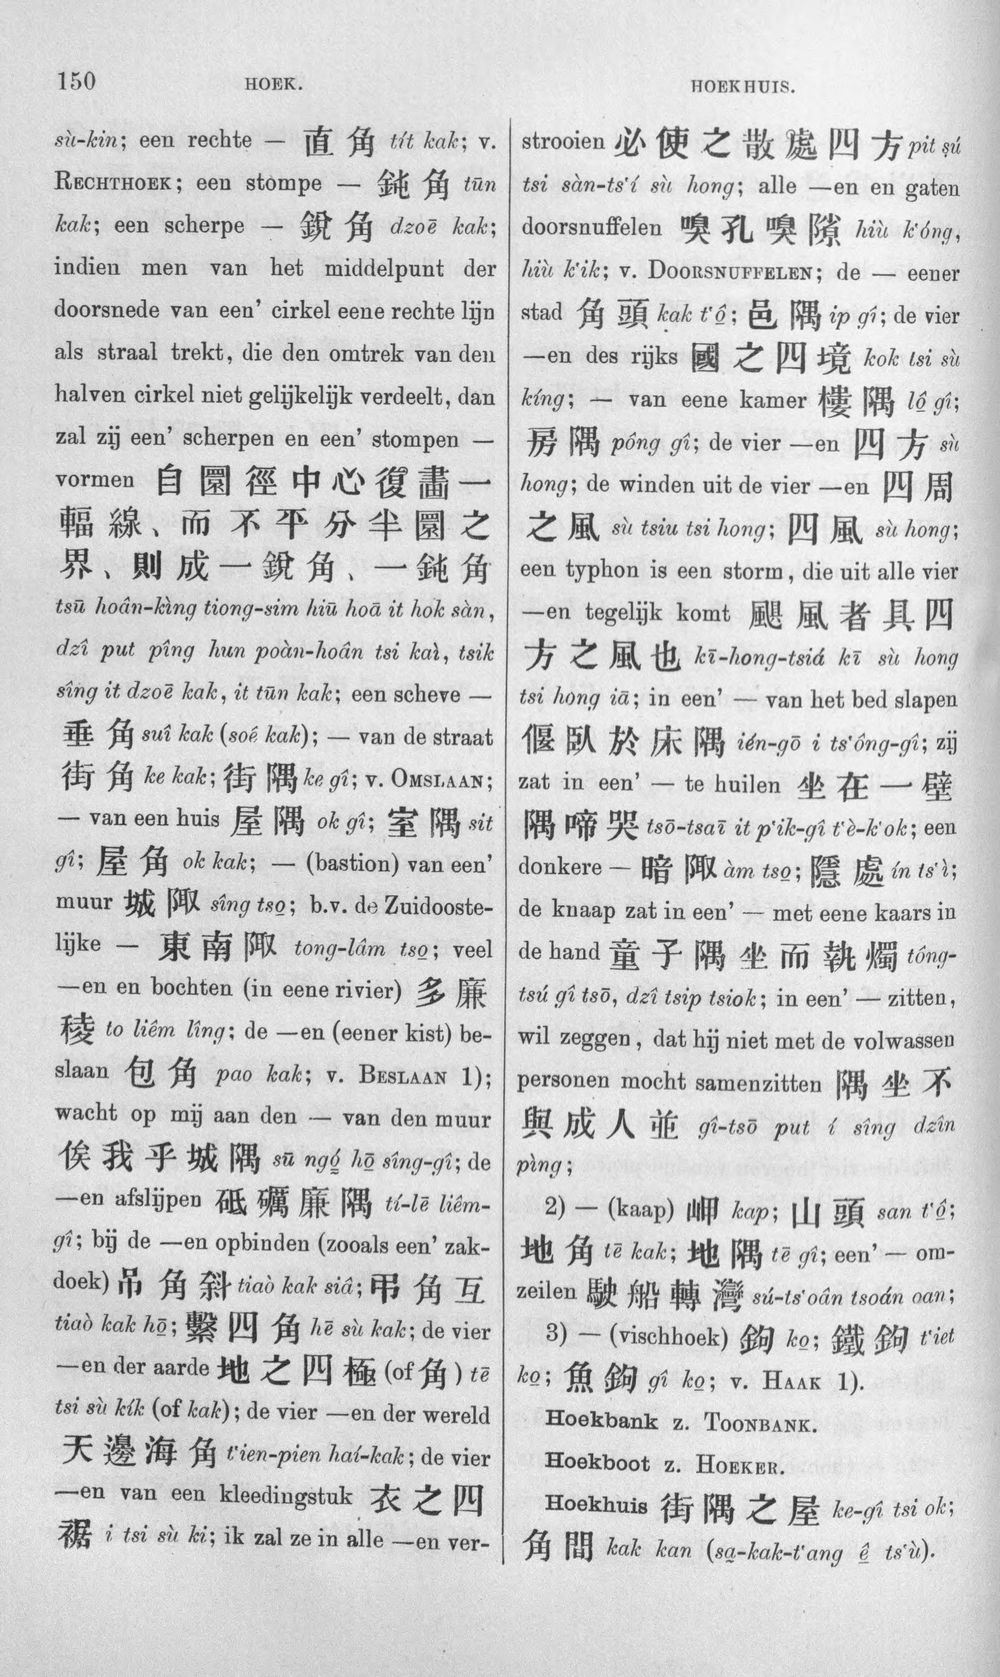 150
HOEK.
HOEKHUIS.
sù-kin; een rechte — 直角 tít kak; v.
RECHTHOEK; een stompe — 鈍角 tūn
kak; een scherpe — 銳角 dzoē kak;
indien men van het middelpunt der
doorsnede van een’ cirkel eene rechte lijn
als straal trekt, die den omtrek van den
halven cirkel niet gelijkelijk verdeelt, dan
zal zij een’ scherpen en een’ stompen —
vormen 自圜徑中心復畵一
輻線、而不平分半圜之
界、則成一銳角、一鈍角
tsū hoân-kìng tiong-sim hiū hoā it hok sàn,
dzî put pîng hun poàn-hoân tsi kaì, tsik
sîng it dzoē kak, it tūn kak; een scheve —
垂角 suî kak (soê kak); — van de straat
街角 ke kak; 街隅 ke gî; v. OMSLAAN;
— van een huis 屋隅 ok gî; 室隅 sit
gî; 屋角 ok kak; — (bastion) van een’
muur 城陬 sîng tso̱; b.v. de Zuidooste-
lijke — 東南陬 tong-lâm tso̱; veel
—en en bochten (in eene rivier) 多廉
稜 to liêm lîng; de —en (eener kist) be-
slaan 包角 pao kak; v. BESLAAN 1);
wacht op mij aan den — van den muur
俟我乎城隅 sū ngó̱ hō̱ sîng-gî; de
—en afslijpen 砥礪廉隅 tí-lē liêm-
gî; bij de —en opbinden (zooals een’ zak-
doek) 吊角斜 tiaò kak siâ; 弔角互
tiaò kak hō̱; 繫四角 hē sù kak; de vier
—en der aarde 地之四極 (of 角) tē
tsi sù kík (of kak); de vier —en der wereld
天邊海角 t‘ien-pien haí-kak; de vier
—en van een kleedingstuk 衣之四
裾 i tsi sù ki; ik zal ze in alle —en ver-
strooien 必使之散處四方 pit sṳ́
tsi sàn-ts‘í sù hong; alle —en en gaten
doorsnuffelen 嗅孔嗅隙 hiù k‘óng,
hiù k‘ik; v. DOORSNUFFELEN; de — eener
stad 角頭 kak t‘ô̱; 邑隅 ip gî; de vier
—en des rijks 國之四境 kok tsi sù
kíng; — van eene kamer 樓隅 lô̱ gî;
房隅 pông gî; de vier —en 四方 sù
hong; de winden uit de vier —en 四周
之風 sù tsiu tsi hong; 四風 sù hong;
een typhon is een storm, die uit alle vier
—en tegelijk komt 颶風者具四
方之風也 kī-hong-tsiá kī sù hong
tsi hong iā; in een’ — van het bed slapen
偃臥於床隅 ién-gō i ts‘ông-gî; zij
zat in een’ — te huilen 坐在一壁
隅啼哭 tsō-tsaī it p‘ik-gî t‘è-k‘ok; een
donkere — 暗陬 àm tso̱; 隱處 ín ts‘ì;
de knaap zat in een’ — met eene kaars in
de hand 童子隅坐而執燭 tông-
tsú gî tsō, dzî tsip tsiok; in een’ — zitten,
wil zeggen, dat hij niet met de volwassen
personen mocht samenzitten 隅坐不
與成人並 gî-tsō put í sîng dzîn
pìng;
2) — (kaap) 岬 kap; 山頭 san t‘ô̱;
地角 tē kak; 地隅 tē gî; een’ — om-
zeilen 駛船轉灣 sú-ts‘oân tsoán oan;
3) — (vischhoek) 鉤 ko̱; 鐵鉤 t‘iet
ko̱; 魚鉤 gî ko̱; v. HAAK 1).
Hoekbank z. TOONBANK.
Hoekboot z. HOEKER.
Hoekhuis 街隅之屋 ke-gî tsi ok;
角間 kak kan (sa̱-kak-t‘ang ê̱ ts‘ù).